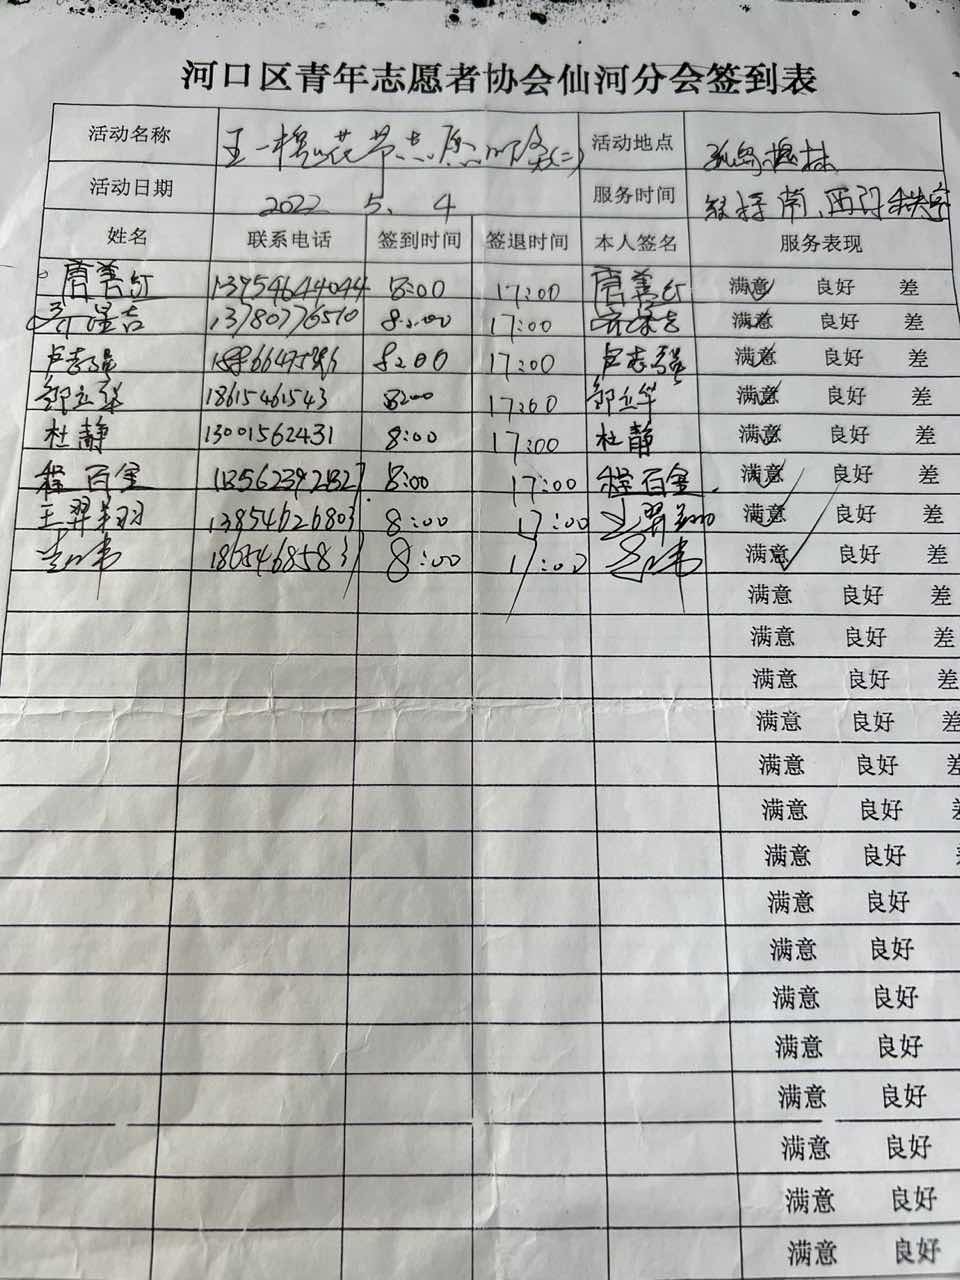 河口区青年志愿者协会仙河分会签到表
活动名称 五一槐花节志愿服务(二) 活动地点 孤岛槐林
活动日期 2022 5. 4 服务时间 维持南、西门秩序
姓名 联系电话 签到时间 签退时间 本人签名 服务表现
13954644044 8:00 17:00 满意 良好 差
13780776510 8:00 17:00 满意 良好 差
卢志强 8:00 17:00 卢志强 满意 良好 差
邹立华 18615461543 8:00 17:00 邹立华 满意 良好 差
杜静 13001562431 8:00 17:00 杜静 满意 良好 差
程百金 8:00 17:00 程百金 满意 良好 差
王羿翔 13854626803 8:00 17:00 王羿翔 满意 良好 差
18654685831 8:00 17:00 满意 良好 差
满意 良好 差
满意 良好 差
满意 良好 差
满意 良好 差
满意 良好 差
满意 良好
满意 良好
满意 良好
满意 良好
满意 良好
满意 良好
满意 良好
满意 良好
满意 良好
满意 良好